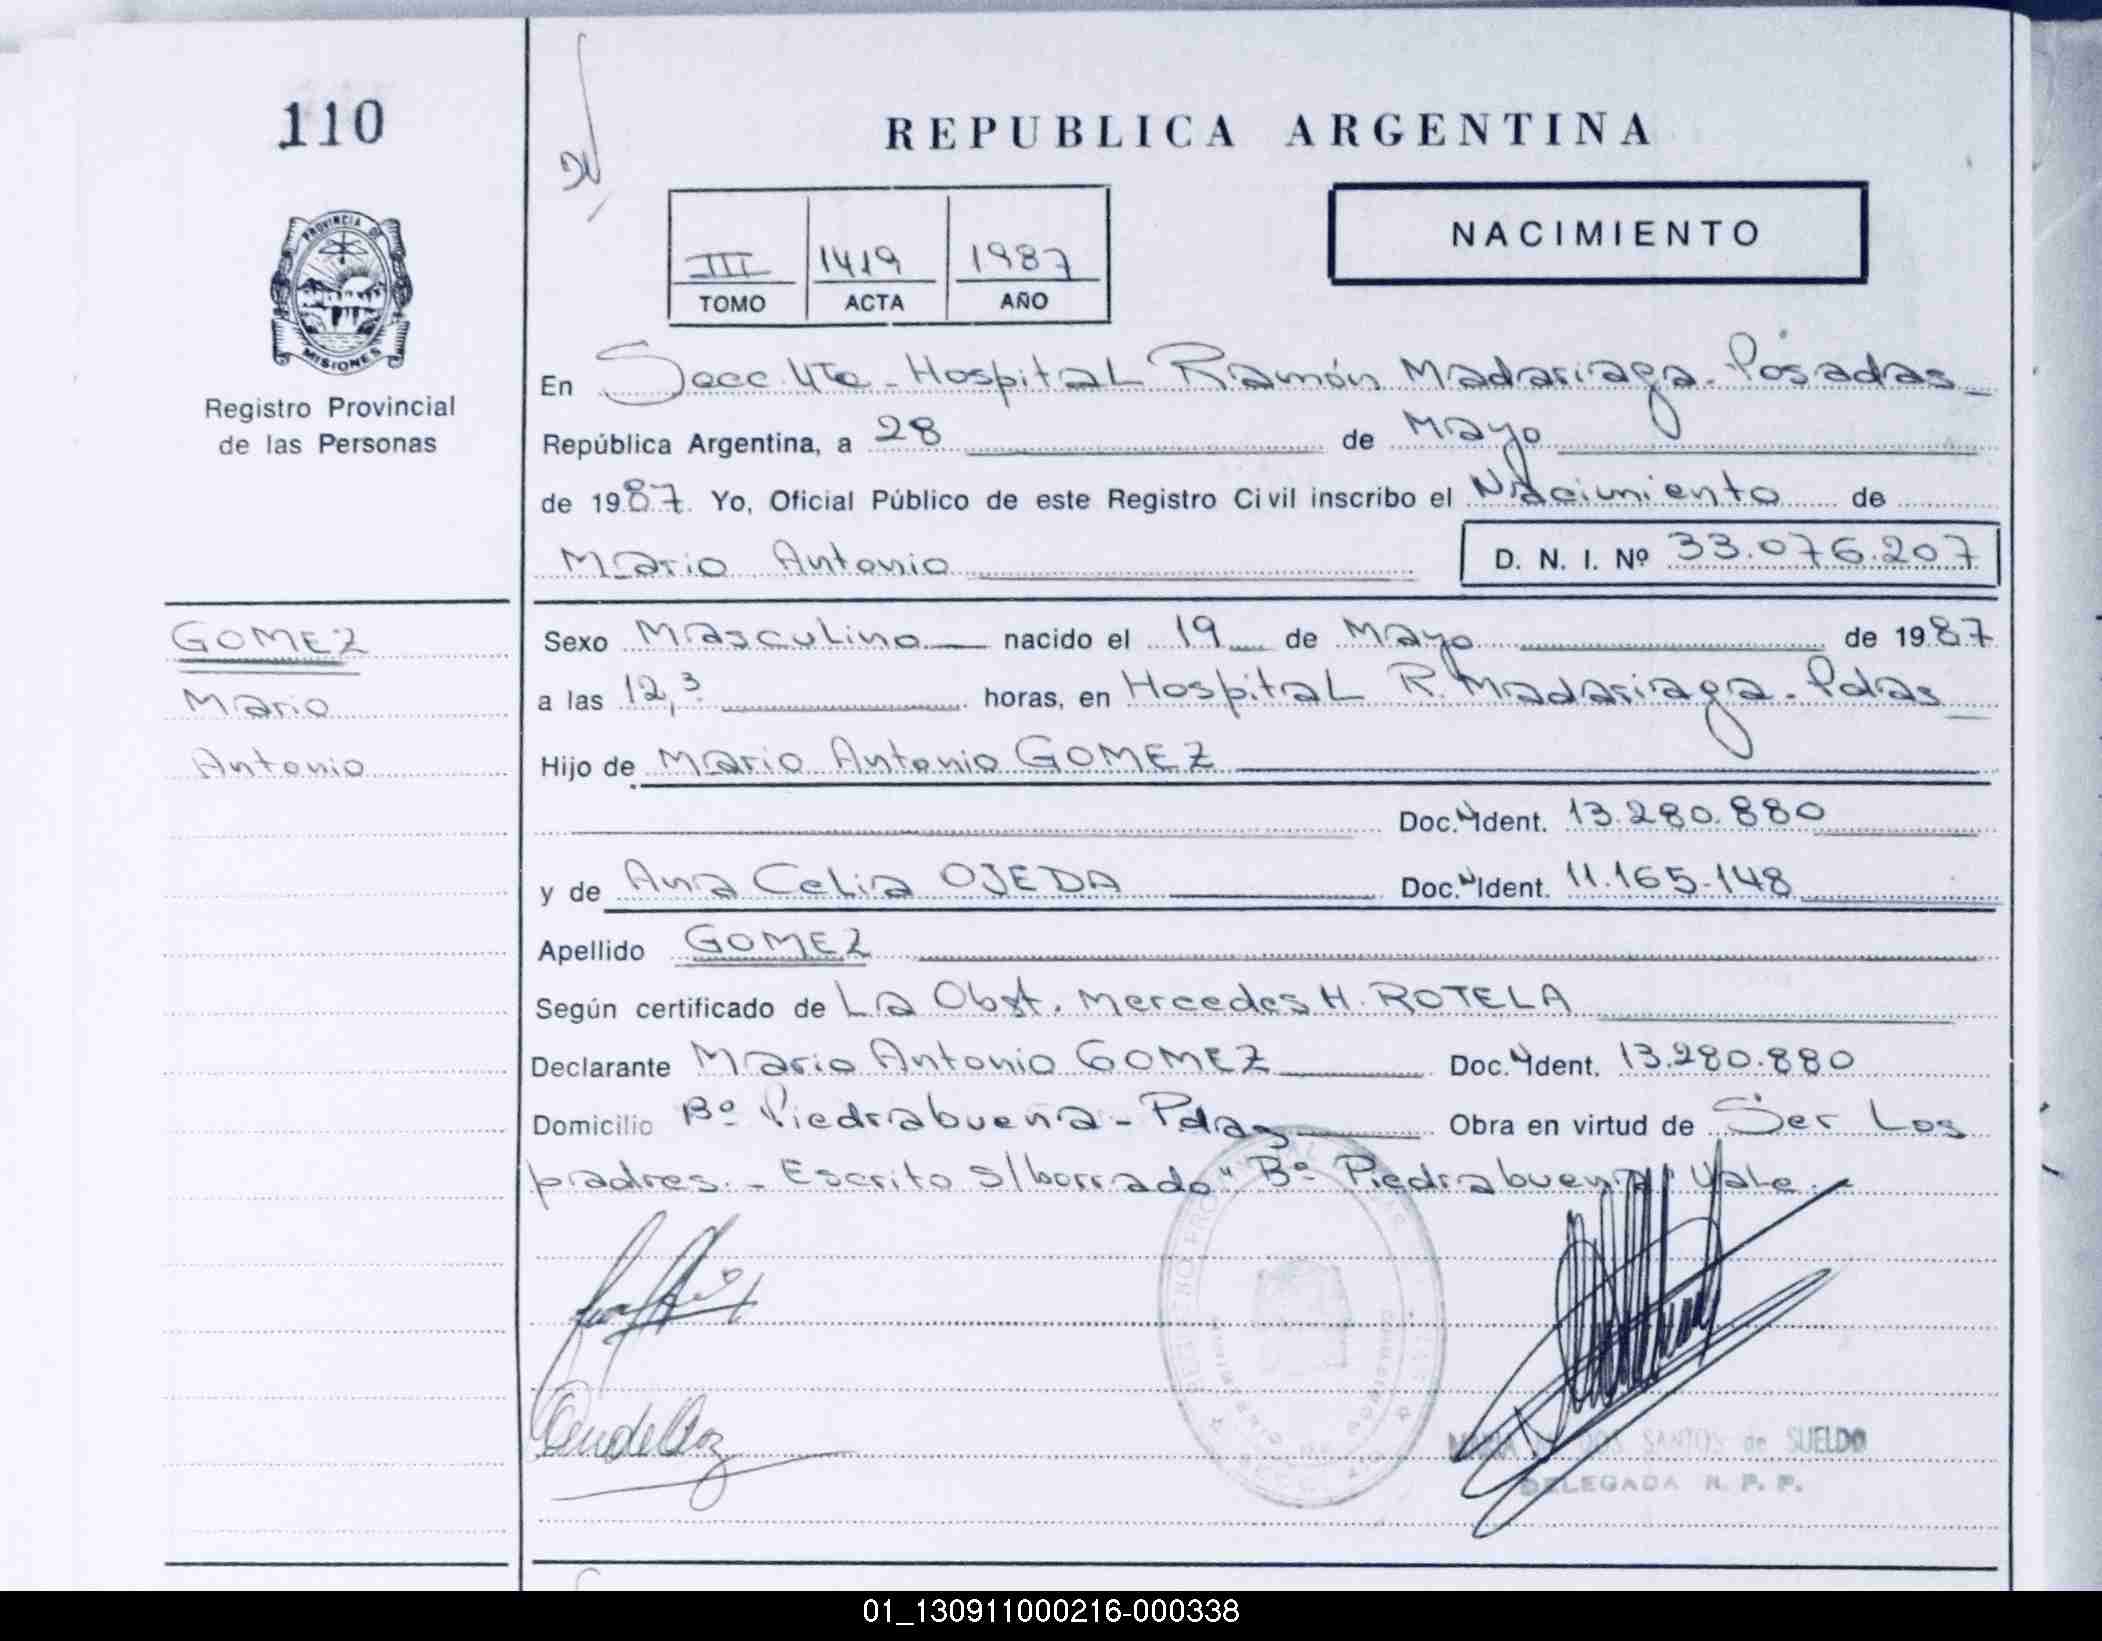 110
PROVINCIA DE
MISIONES
Registro Provincial
de las Personas
GOMEZ
Mario
Antonio
REPUBLICA ARGENTINA
III 1419 1987
TOMO ACTA AÑO
NACIMIENTO
En Secc. 4ta - Hospital Ramón Madariaga - Posadas
República Argentina, a 28 de Mayo
de 1987. Yo, Oficial Público de este Registro Civil inscribo el Nacimiento de
Mario Antonio D. N. I. Nº 33.076.207
Sexo Masculino nacido el 19 de Mayo de 1987
a las 12,3 horas, en Hospital R. Madariaga - Pdas
Hijo de Mario Antonio GOMEZ
Doc. Ident. 13.280.880
y de Ana Celia OJEDA Doc. Ident. 11.165.148
Apellido GOMEZ
Según certificado de La Obst. Mercedes H. ROTELA
Declarante Mario Antonio GOMEZ Doc. Ident. 13.280.880
Domicilio Bº Piedrabuena - Pdas Obra en virtud de Ser Los
padres. - Escrito s/borrado "Bº Piedrabuena" Vale.-
DOS SANTOS de SUELDO
DELEGADA R. P. P.
01_130911000216-000338